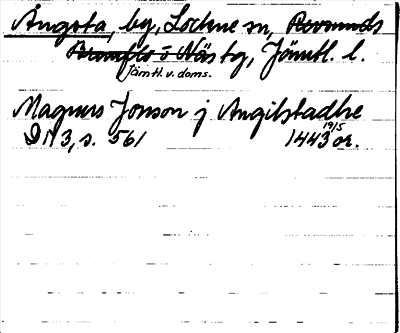 Ångsta, by, Lockne sn, Revsunds
Brunflo o Näs tg, Jämtl. l.
Jämtl. v. doms.
Magnus Jonson j Angilstadhe
DN 3, s. 561 1443 19/5 or.